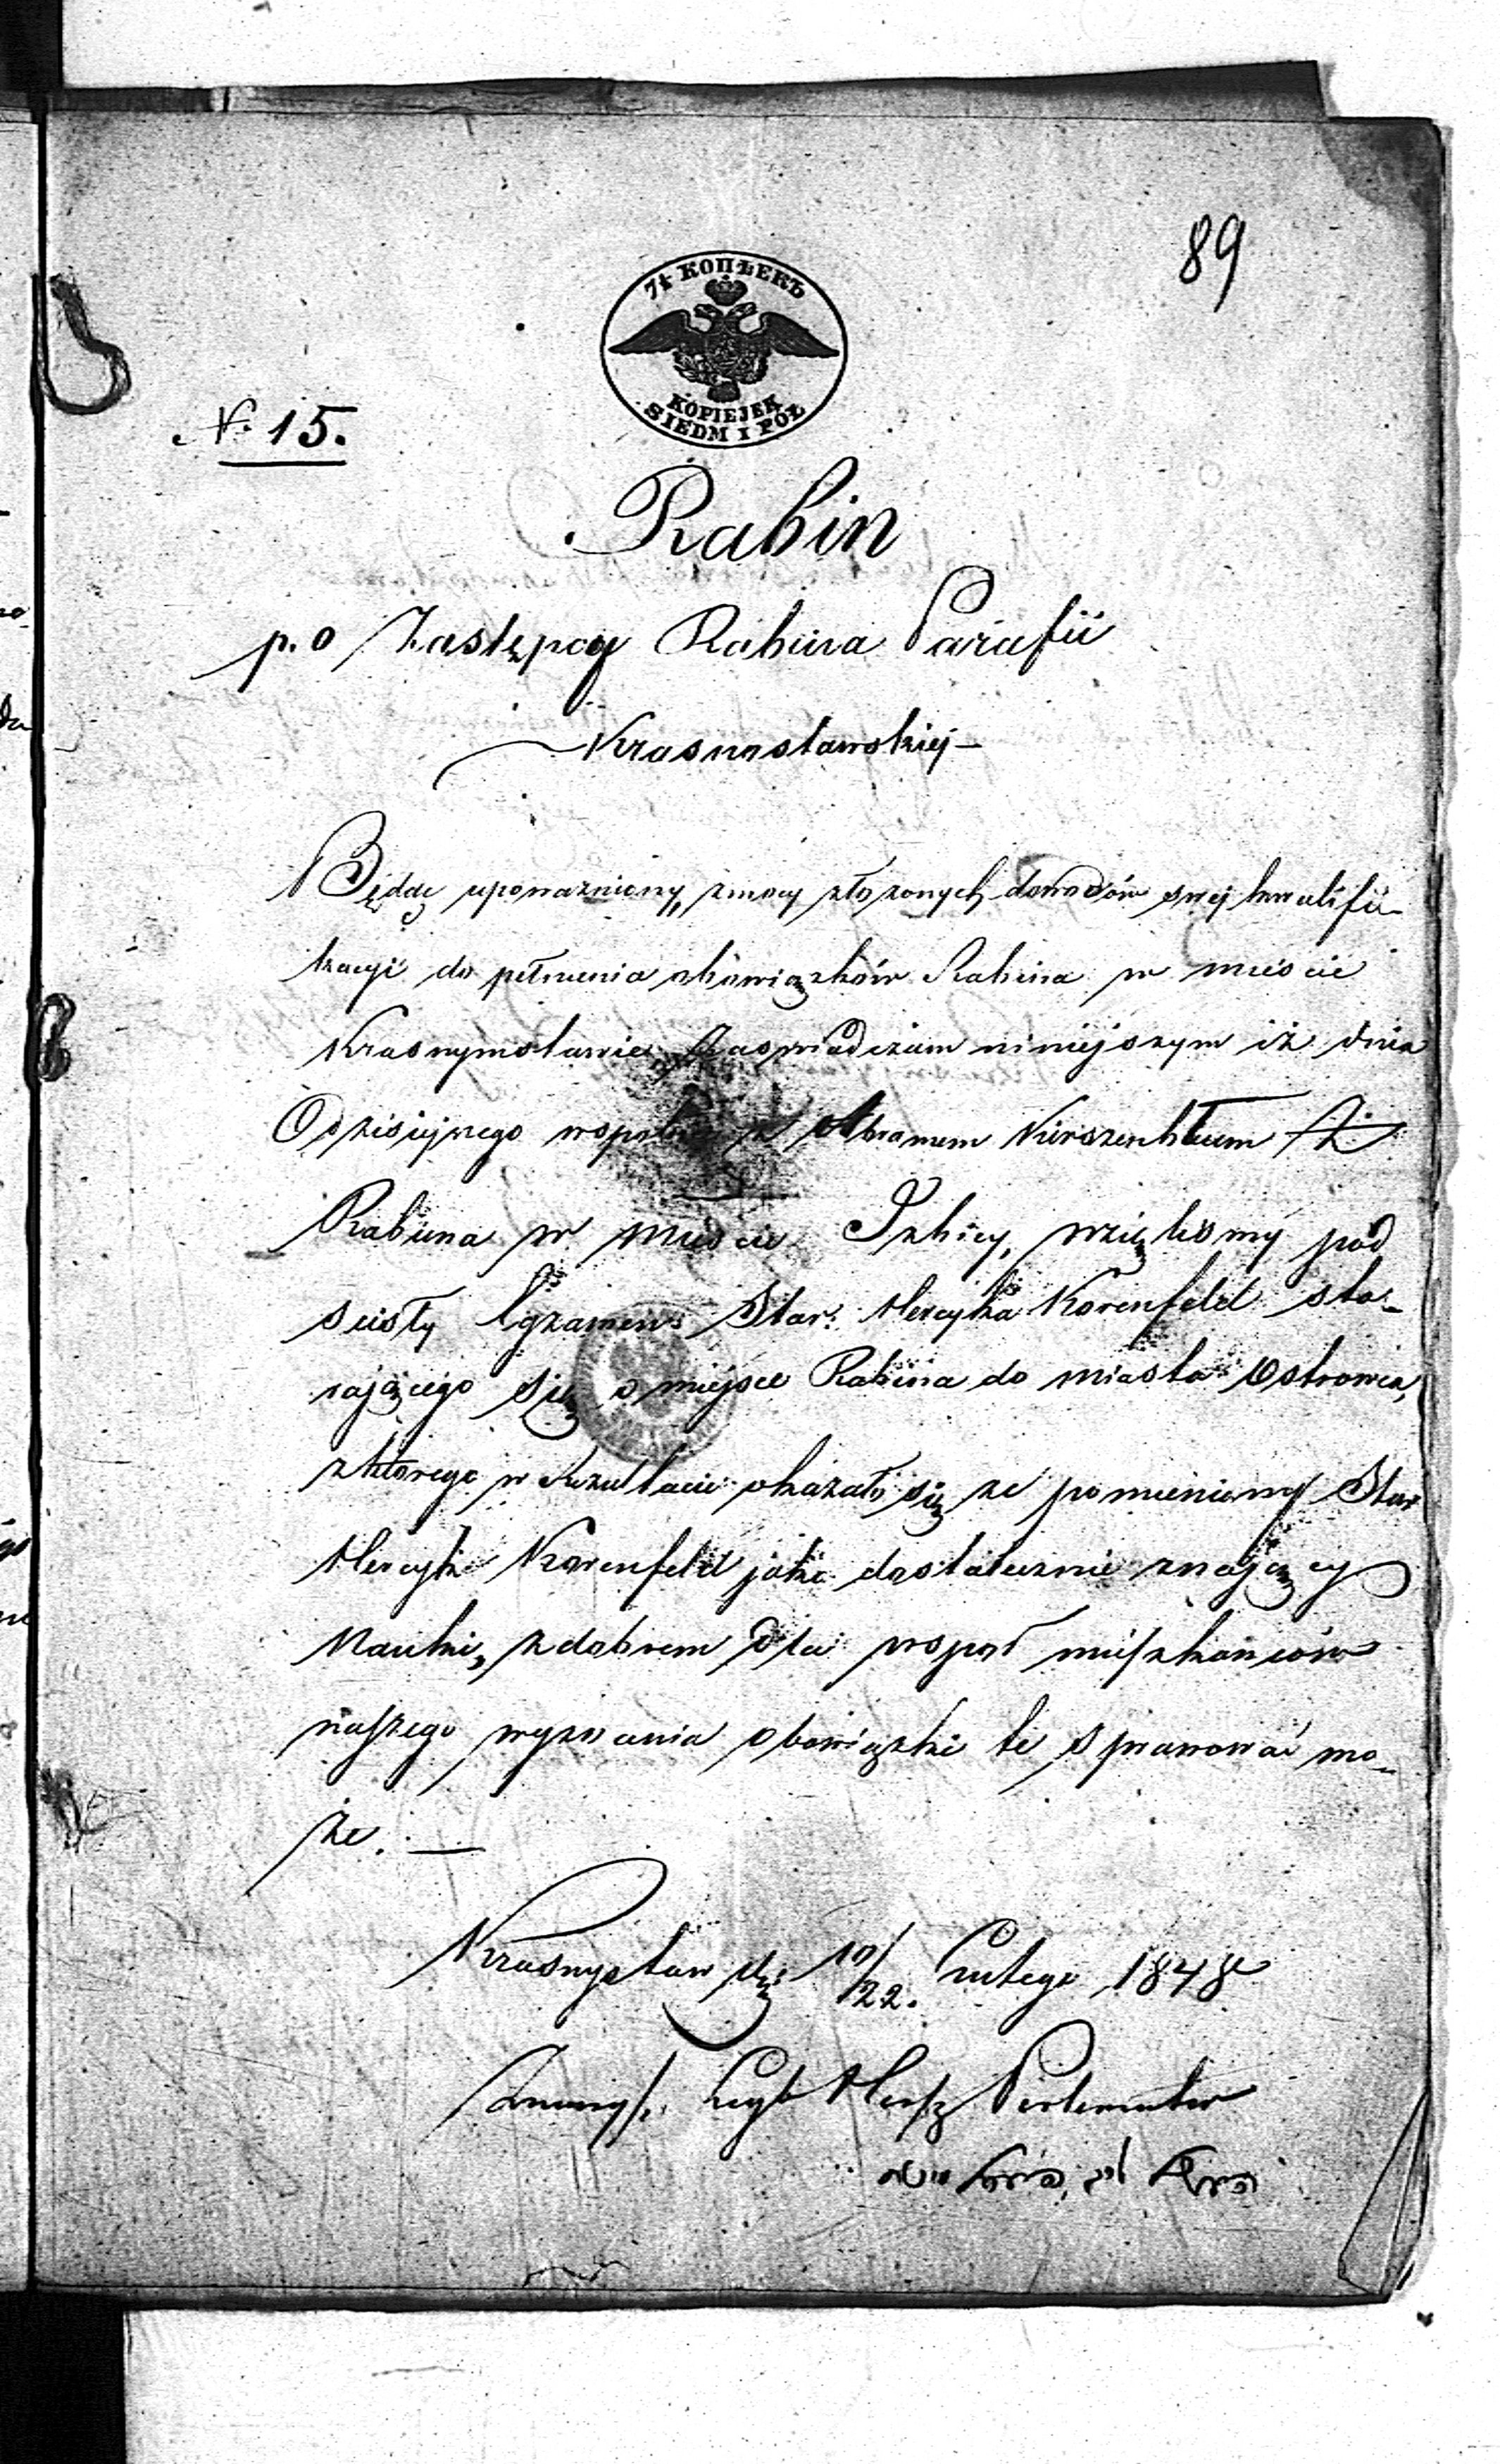 89
7½ КОПѢЕКЪ
KOPIEJEK
SIEDM I PÓŁ
N. 15.
Rabin
p.o Zastępcy Rabina Parafii
Krasnostawskiej
Będąc upoważniony, zmocy złożonych dowodów swej kwalifi-
kacyi do pełnienia obowiązków Rabina w mieście
Krasnymstawie Zaświadczam niniejszym iż dnia
Dzisiejszego wspólnie z Abramem Kirszenbłum
Rabina w mieście Izbicy, wzięliśmy pod
ścisły Egzamen Star: Hercyka Korenfeld sta-
rającego się o miejsce Rabina do miasta Ostrowia,
zktórego w Rezultacie okazało się że pomieniony Star
Hercyk Korenfeld jako dostatecznie znający
Nauki, zdobrem dla współ mieszkańców
naszego wyznania obowiązki te sprawować mo-
że.
Krasnystaw d: 10/22. Lutego 1848
Leyb Hersz Perlemuter